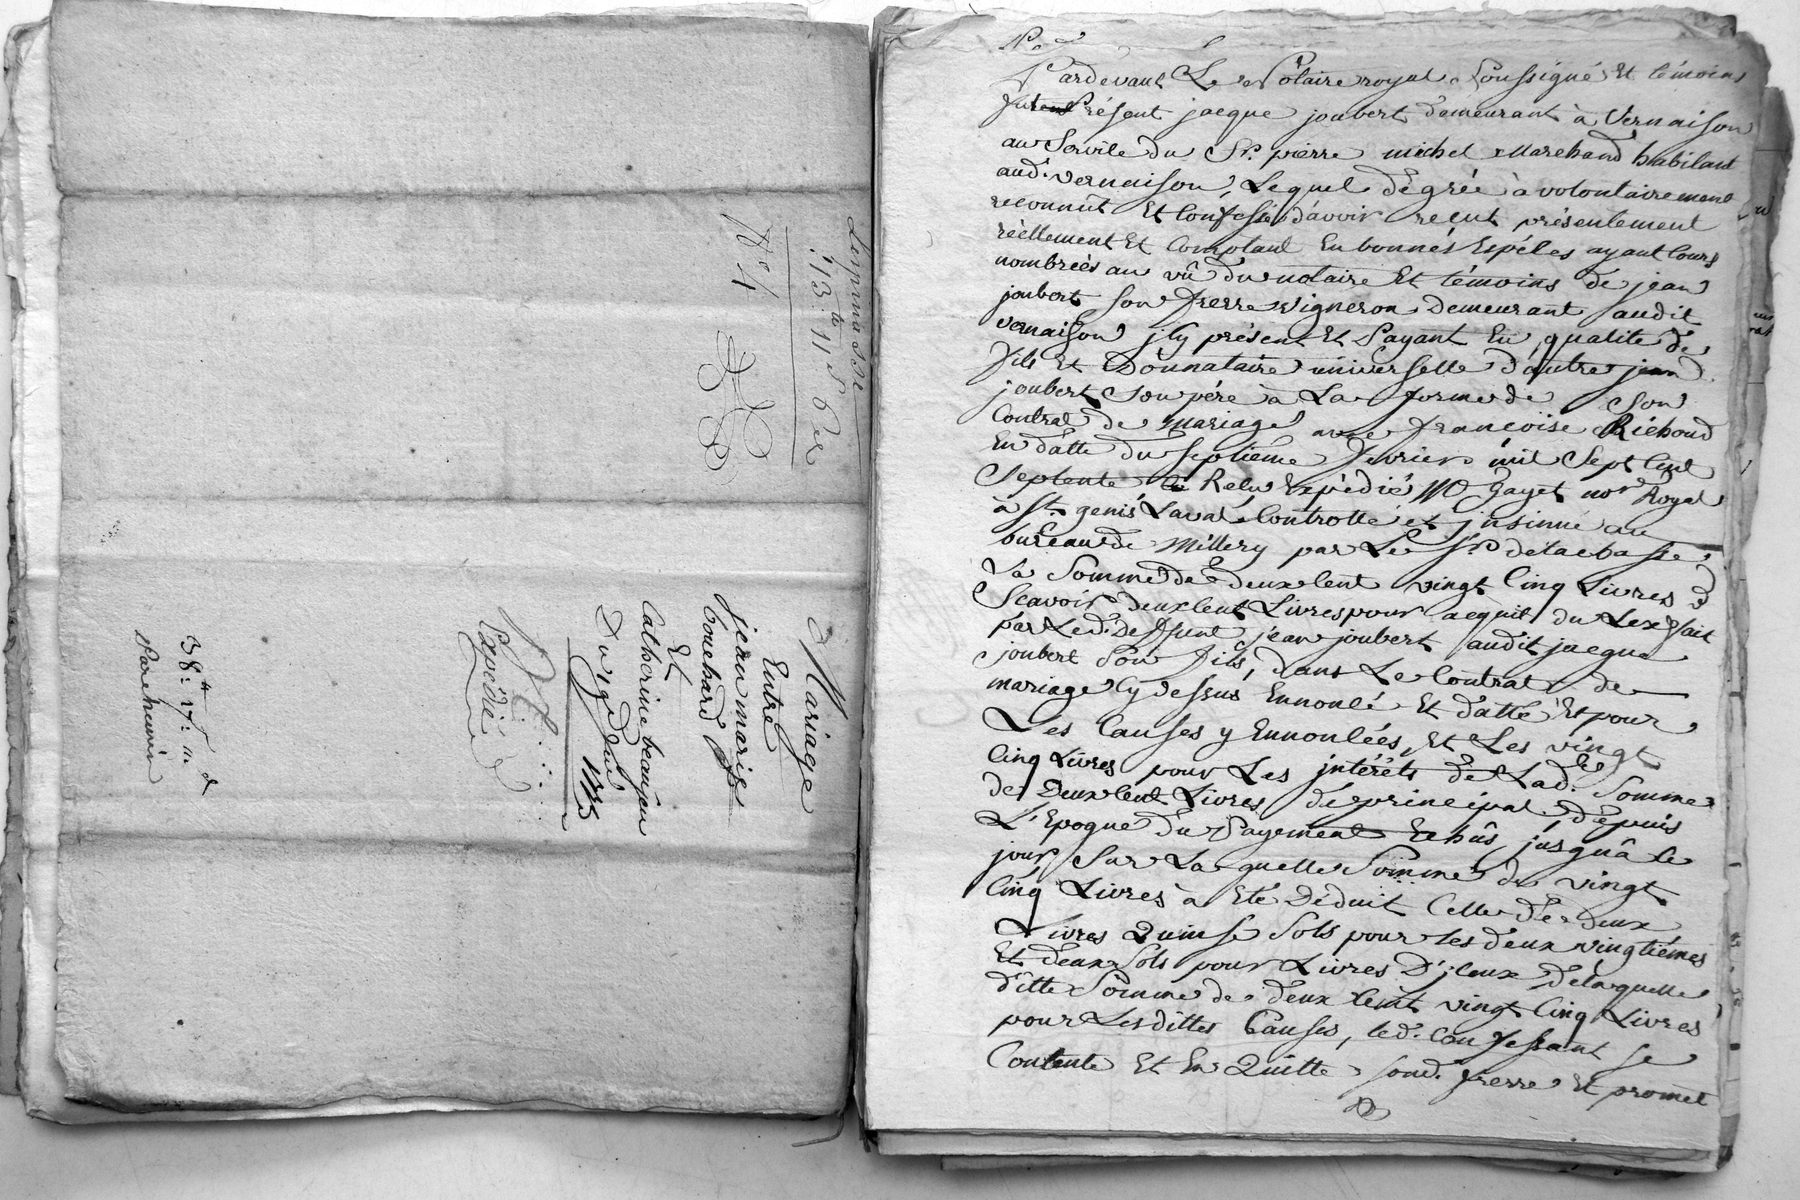 N° 4
113.tt 11 s 6 d
Mariage
Entre
jean marie
bouchard
Et
Catherine beaujeu
Du 9e Juin 1775
Expédié
38.tt 17.s
Parchemin
Pardevant Le Notaire royal Soussigné Et témoins
fut Présent jacque joubert demeurant à Vernaison
au Service du Sr. pierre michel Marchand habitant
aud. Vernaison, Lequel de gré à volontairement
reconnût Et Confessé d'avoir recut présentement
réellement Et Comptant En bonnes Espéces ayant Cours
nombreés au vû du notaire Et témoins de jean
joubert son frerre Vigneron demeurant audit
vernaison jcy présent Et Payant En qualite de
fils Et Donnataire universelle d'autre jean
joubert Son pére à La forme de Son
Contrat de mariage avec francoise Richoud
En datte du Septiéme fevrier mil Sept Cent
Septente Relu Expédié Me Gayet nore Royal
à St. genis Laval Controllé et jnsinué au
bureau de Millery par Le Sr. delachasse
La Somme de deux Cent vingt Cinq Livres
Scavoir deux Cent Livres pour acquit du Lex fait
par Led. Defunt jean joubert audit jacque
joubert Son fils, dans Le Contrat de
mariage Cy dessus Ennoncé Et datté Et pour
Les Causes y Ennoncées, Et Les vingt
Cinq Livres pour Les intérêts de Lad. Somme
de Deux Cent Livres de principal depuis
L'Epoque du Payement Echûs jusqu'à Ce
jour, Sur La quelle Somme de vingt
Cinq Livres à Eté Déduit Celle de deux
Livres Quinse Sols pour les deux vingtiémes
Et deux Sols pour Livres D'jceux de laquelle
ditte Somme de deux Cent vingt Cinq Livres
pour Lesdittes Causes, led. Confessant se
Contente Et En Quitte sond. frerre Et promet